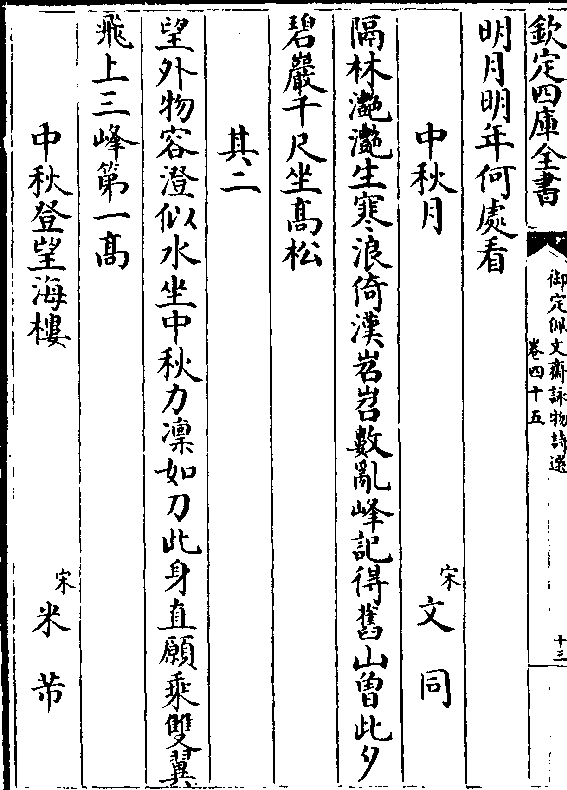 欽定四庫全書
御定佩文齋詠物詩選
卷四十五
十三
明月明年何處看
中秋月 宋 文同
隔林灔灔生寒浪倚漢岧岧數亂峰記得舊山曾此夕
碧巖千尺坐高松
其二
望外物容澄似水坐中秋力凜如刀此身直願乘雙翼
飛上三峰第一高
中秋登望海樓 宋 米芾